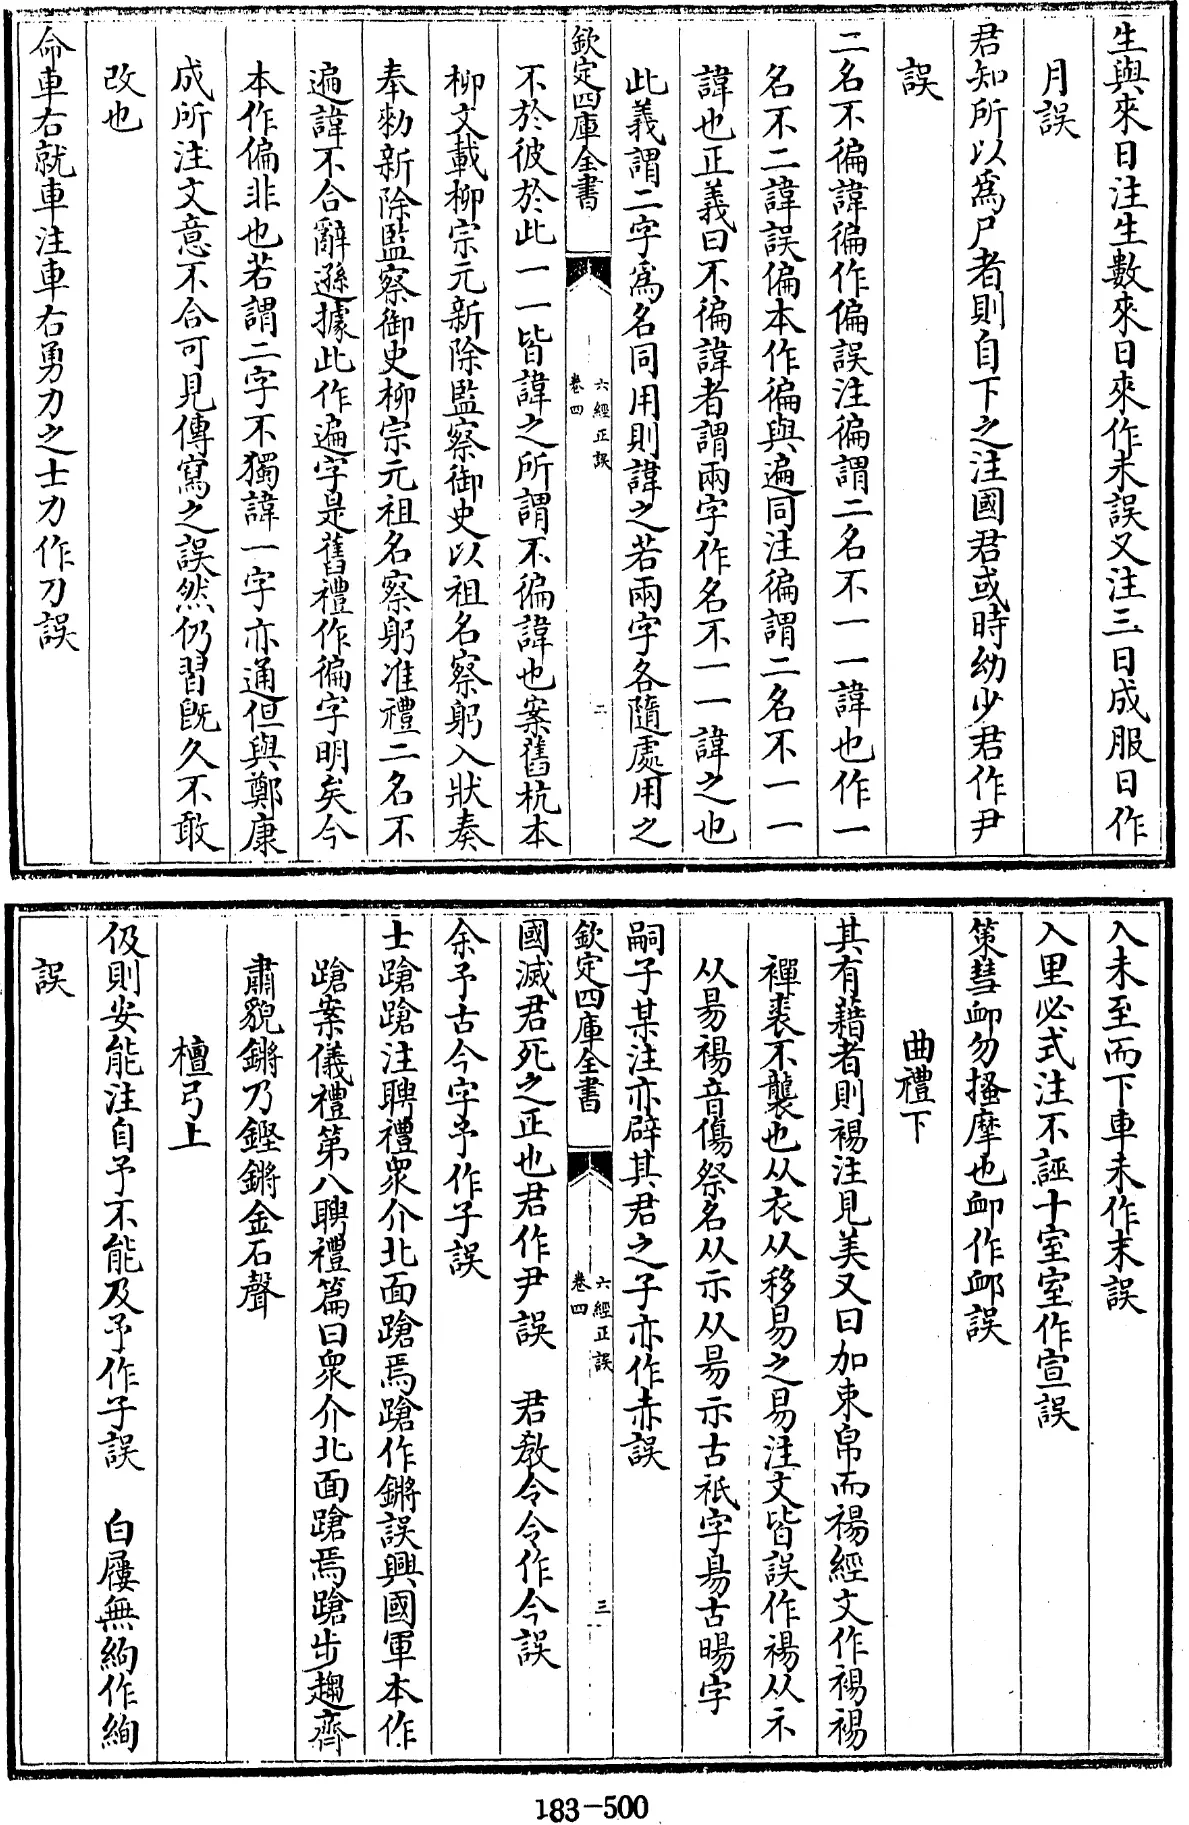 生與來日注生數來日來作未誤又注三日成服日作
月誤
君知所以爲尸者則自下之注國君或時幼少君作尹
誤
二名不徧諱徧作偏誤注徧謂二名不一一諱也作一
名不二諱誤偏本作徧與遍同注徧謂二名不一一
諱也正義曰不徧諱者謂兩字作名不一一諱之也
此義謂二字爲名同用則諱之若兩字各隨處用之
欽定四庫全書
六經正誤
卷四
二
不於彼於此一一皆諱之所謂不徧諱也案舊杭本
柳文載柳宗元新除監察御史以祖名察躬入狀奏
奉勅新除監察御史柳宗元祖名察躬准禮二名不
遍諱不合辭遜據此作遍字是舊禮作徧字明矣今
本作偏非也若謂二字不獨諱一字亦通但與鄭康
成所注文意不合可見傳寫之誤然仍習旣久不敢
改也
命車右就車注車右勇力之士力作刀誤
入未至而下車未作末誤
入里必式注不誣十室室作宣誤
策彗卹勿搔摩也卹作䘏誤
曲禮下
其有藉者則裼注見美又曰加束帛而裼經文作裼裼
襌裘不襲也从衣从移易之易注文皆誤作禓从示
从昜禓音傷祭名从示从昜示古祇字昜古暘字
嗣子某注亦辟其君之子亦作赤誤
欽定四庫全書
六經正誤
卷四
三
國滅君死之正也君作尹誤　君敎令令作今誤
余予古今字予作子誤
士蹌蹌注聘禮衆介北面蹌焉蹌作鏘誤興國軍本作
蹌案儀禮第八聘禮篇曰衆介北面蹌焉蹌步趨齊
肅貌鏘乃鏗鏘金石聲
檀弓上
伋則安能注自予不能及予作子誤　白屨無絇作絢
誤
183-500